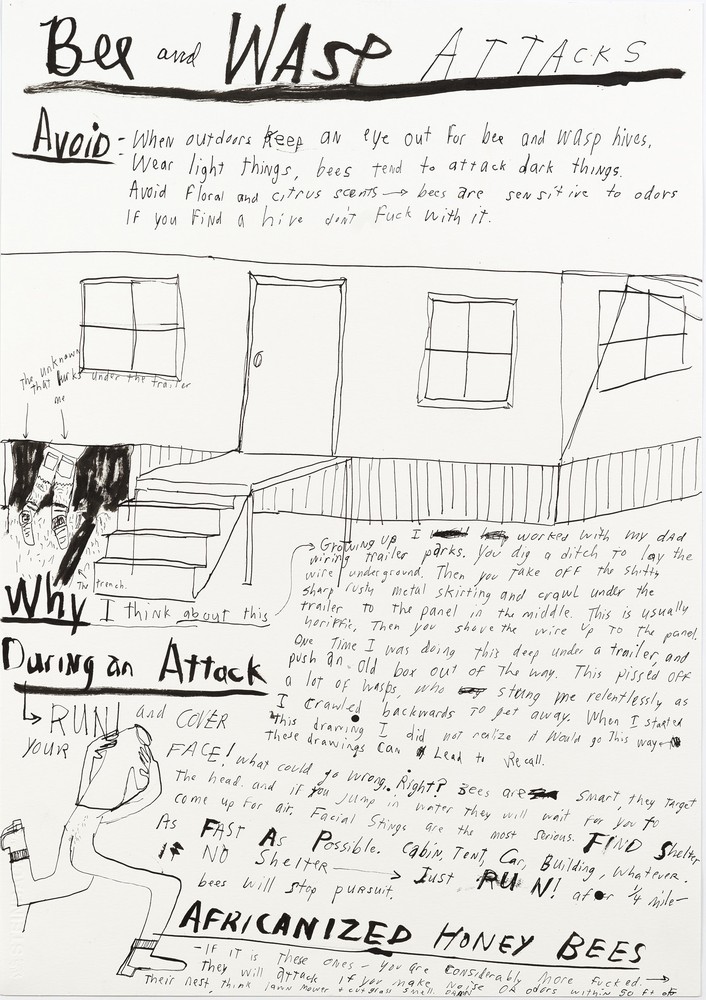 Bee and WASP ATTACKS
Avoid - When outdoors keep an eye out for bee and wasp hives.
Wear light things, bees tend to attack dark things.
Avoid floral and citrus scents → bees are sensitive to odors
If you find a hive don't fuck with it.
The unknown
that lurks under the trailer
me
The trench.
Why I think about this
Growing up I worked with my dad
wiring trailer parks. You dig a ditch to lay the
wire underground. Then you take off the shitty
sharp rusty metal skirting and crawl under the
trailer to the panel in the middle. This is usually
horiffic, Then you shove the wire up to the panel.
One time I was doing this deep under a trailer, and
push an old box out of the way. This pissed off
a lot of wasps, who stung me relentlessly as
I crawled backwards to get away. When I started
this drawing I did not realize it would go this way
these drawings can lead to recall.
During an Attack
RUN! and COVER
YOUR FACE! what could go wrong, Right? Bees are smart, they target
the head. and if you jump in water they will wait for you to
come up for air. Facial Stings are the most serious. FIND Shelter
As FAST As Possible. Cabin, Tent, Car, Building, whatever.
If NO Shelter → Just RUN! after 1/4 mile -
bees will stop pursuit.
AFRICANIZED HONEY BEES
- IF it is these ones - you are considerably more fucked. →
They will attack if you make noise or odors within 50 ft of
their nest, think lawn mower + cut grass smell.